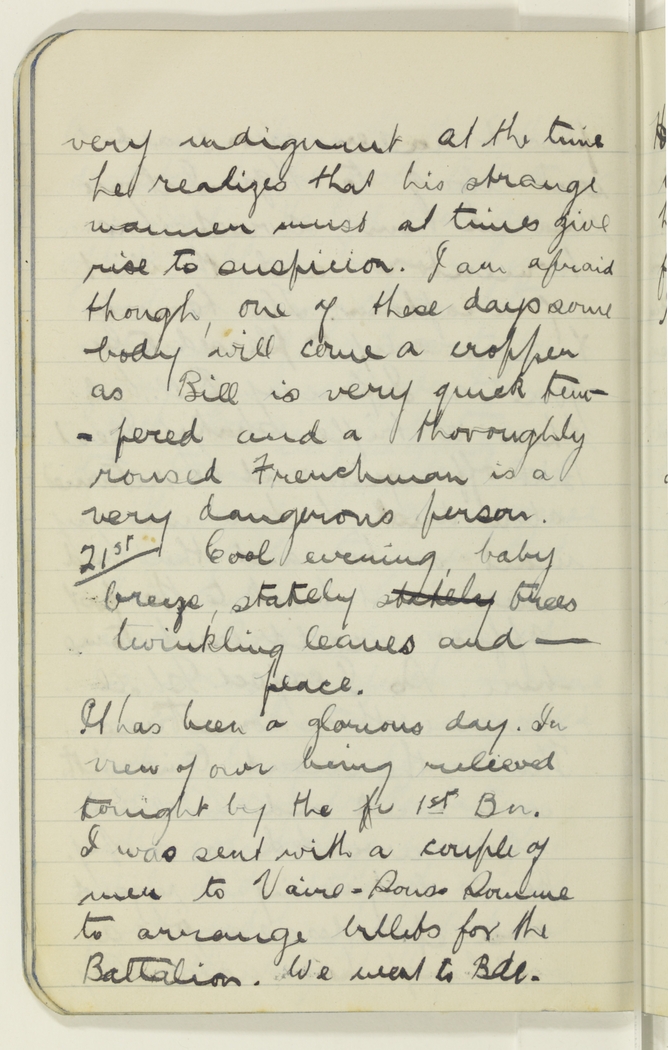 very indignant at the time
he realizes that his strange
manner must at times give
rise to suspicion. I am afraid
though, one of these days some
body will come a cropper
as Bill is very quick tem-
- pered and a thoroughly
roused Frenchman is a
very dangerous person.
21st Cool evening, baby
breeze, stately stately trees
twinkling leaves and —
peace.
It has been a glorious day. In
view of our being relieved
tonight by the 1st Bn.
I was sent with a couple of
men to Vaire-Sous-
to arrange billets for the
Battalion. We went to Bde.